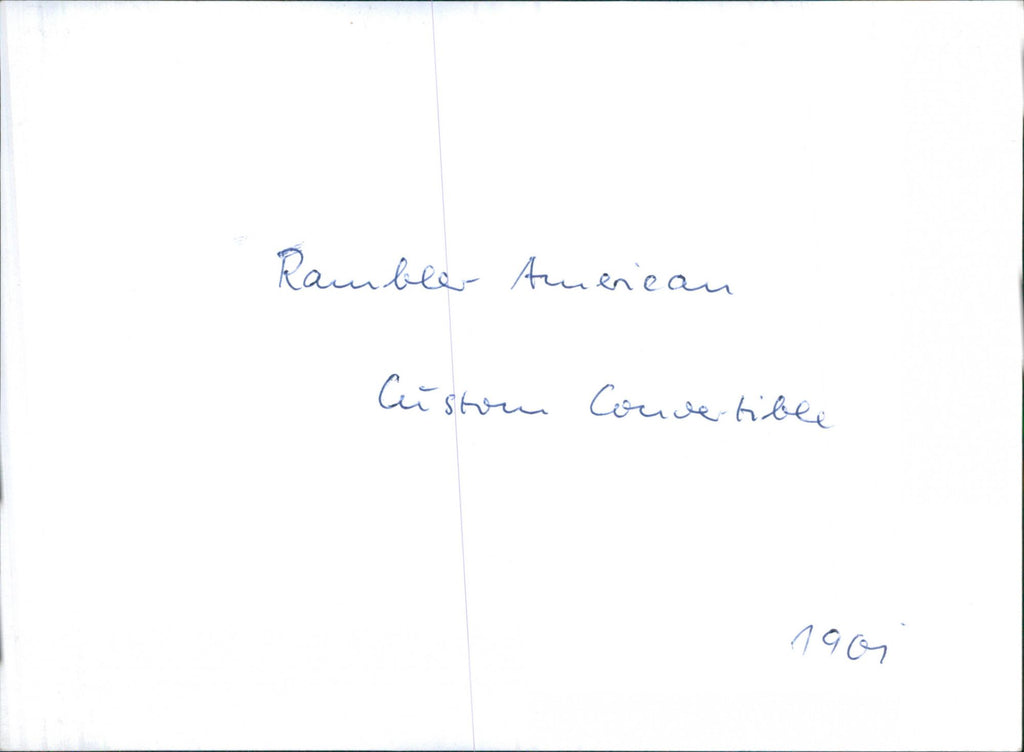 Rambler American
Custom Convertible